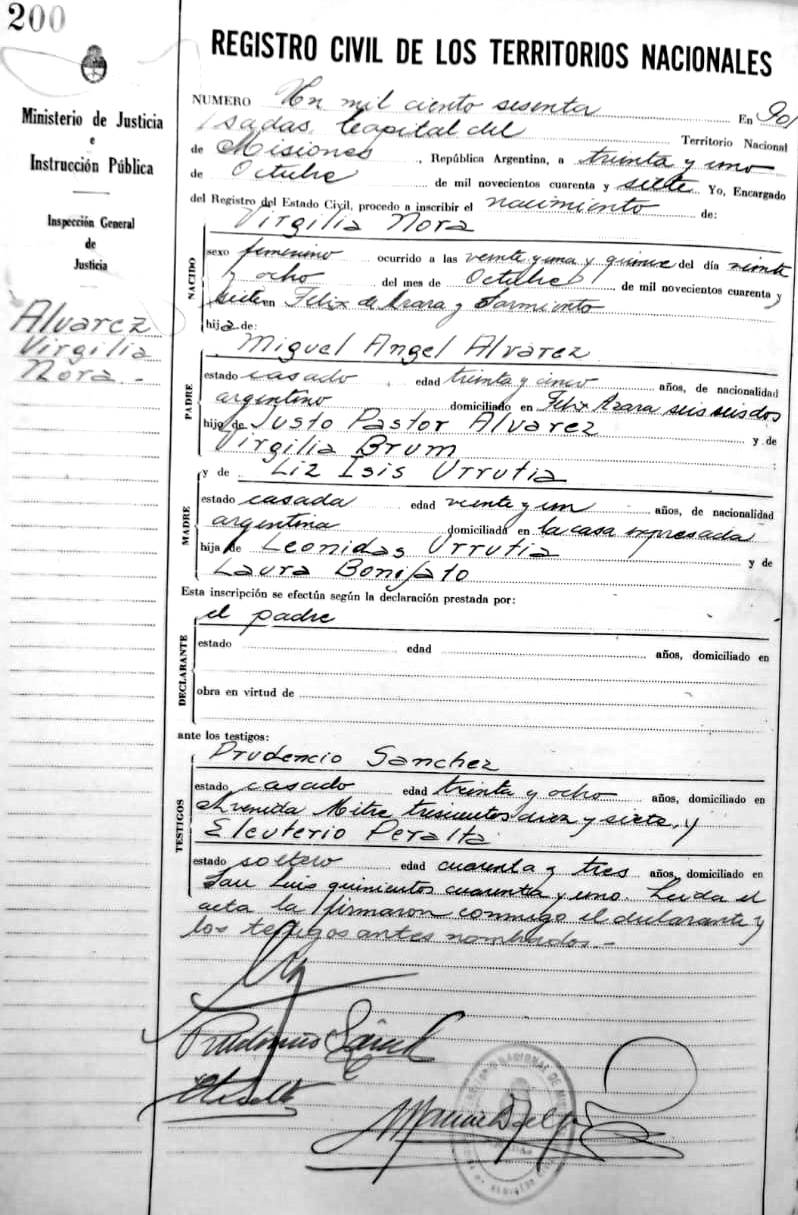 200
Ministerio de Justicia
e
Instrucción Pública
Inspección General
de
Justicia
Alvarez
Virgilia
Nora.-
REGISTRO CIVIL DE LOS TERRITORIOS NACIONALES
NUMERO Un mil ciento sesenta En Po
sadas, Capital del Territorio Nacional
de Misiones, República Argentina, a treinta y uno
de Octubre de mil novecientos cuarenta y siete Yo, Encargado
del Registro del Estado Civil, procedo a inscribir el nacimiento de:
Virgilia Nora
NACIDO
sexo femenino ocurrido a las veinte y una y quince del día veinte
y ocho del mes de Octubre de mil novecientos cuarenta y
siete en Felix de Azara y Sarmiento
hija de:
Miguel Angel Alvarez
PADRE
estado casado edad treinta y cinco años, de nacionalidad
argentino domiciliado en Felix Azara seis seis dos
hijo de Justo Pastor Alvarez y de
Virgilia Brum
y de Liz Isis Urrutia
MADRE
estado casada edad veinte y un años, de nacionalidad
argentina domiciliada en la casa expresada
hija de Leonidas Urrutia y de
Laura Bonifato
Esta inscripción se efectún según la declaración prestada por:
el padre
DECLARANTE
estado edad años, domiciliado en
obra en virtud de
ante los testigos:
Prudencio Sanchez
TESTIGOS
estado casado edad treinta y ocho años, domiciliado en
Avenida Mitre trescientos diez y siete, y
Eleuterio Peralta
estado soltero edad cuarenta y tres años, domiciliado en
San Luis quinientos cuarenta y uno. Leida el
acta la firmaron conmigo el declarante y
los testigos antes nombrados.-